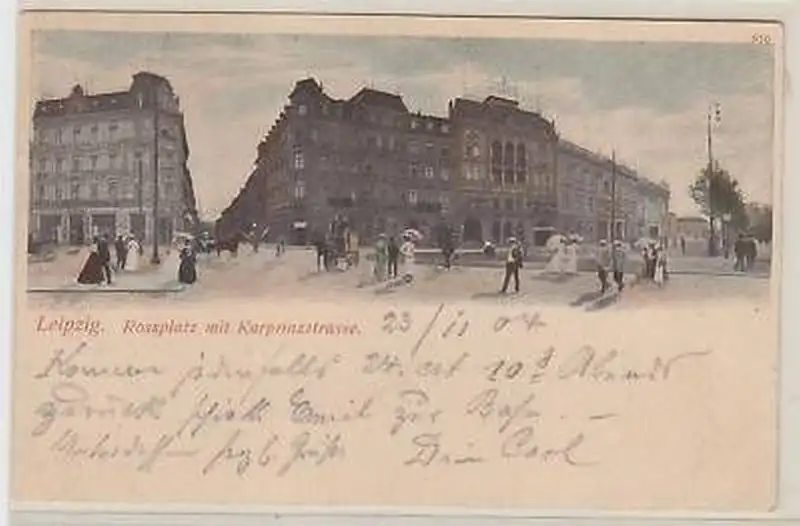 910
Leipzig. Rossplatz mit Kurprinzstrasse. 23/11 04
Komme jedenfalls 24. ert 10 Abends
zurück schick Emil zur Bahn. —
herzl. Grüße Dein Carl